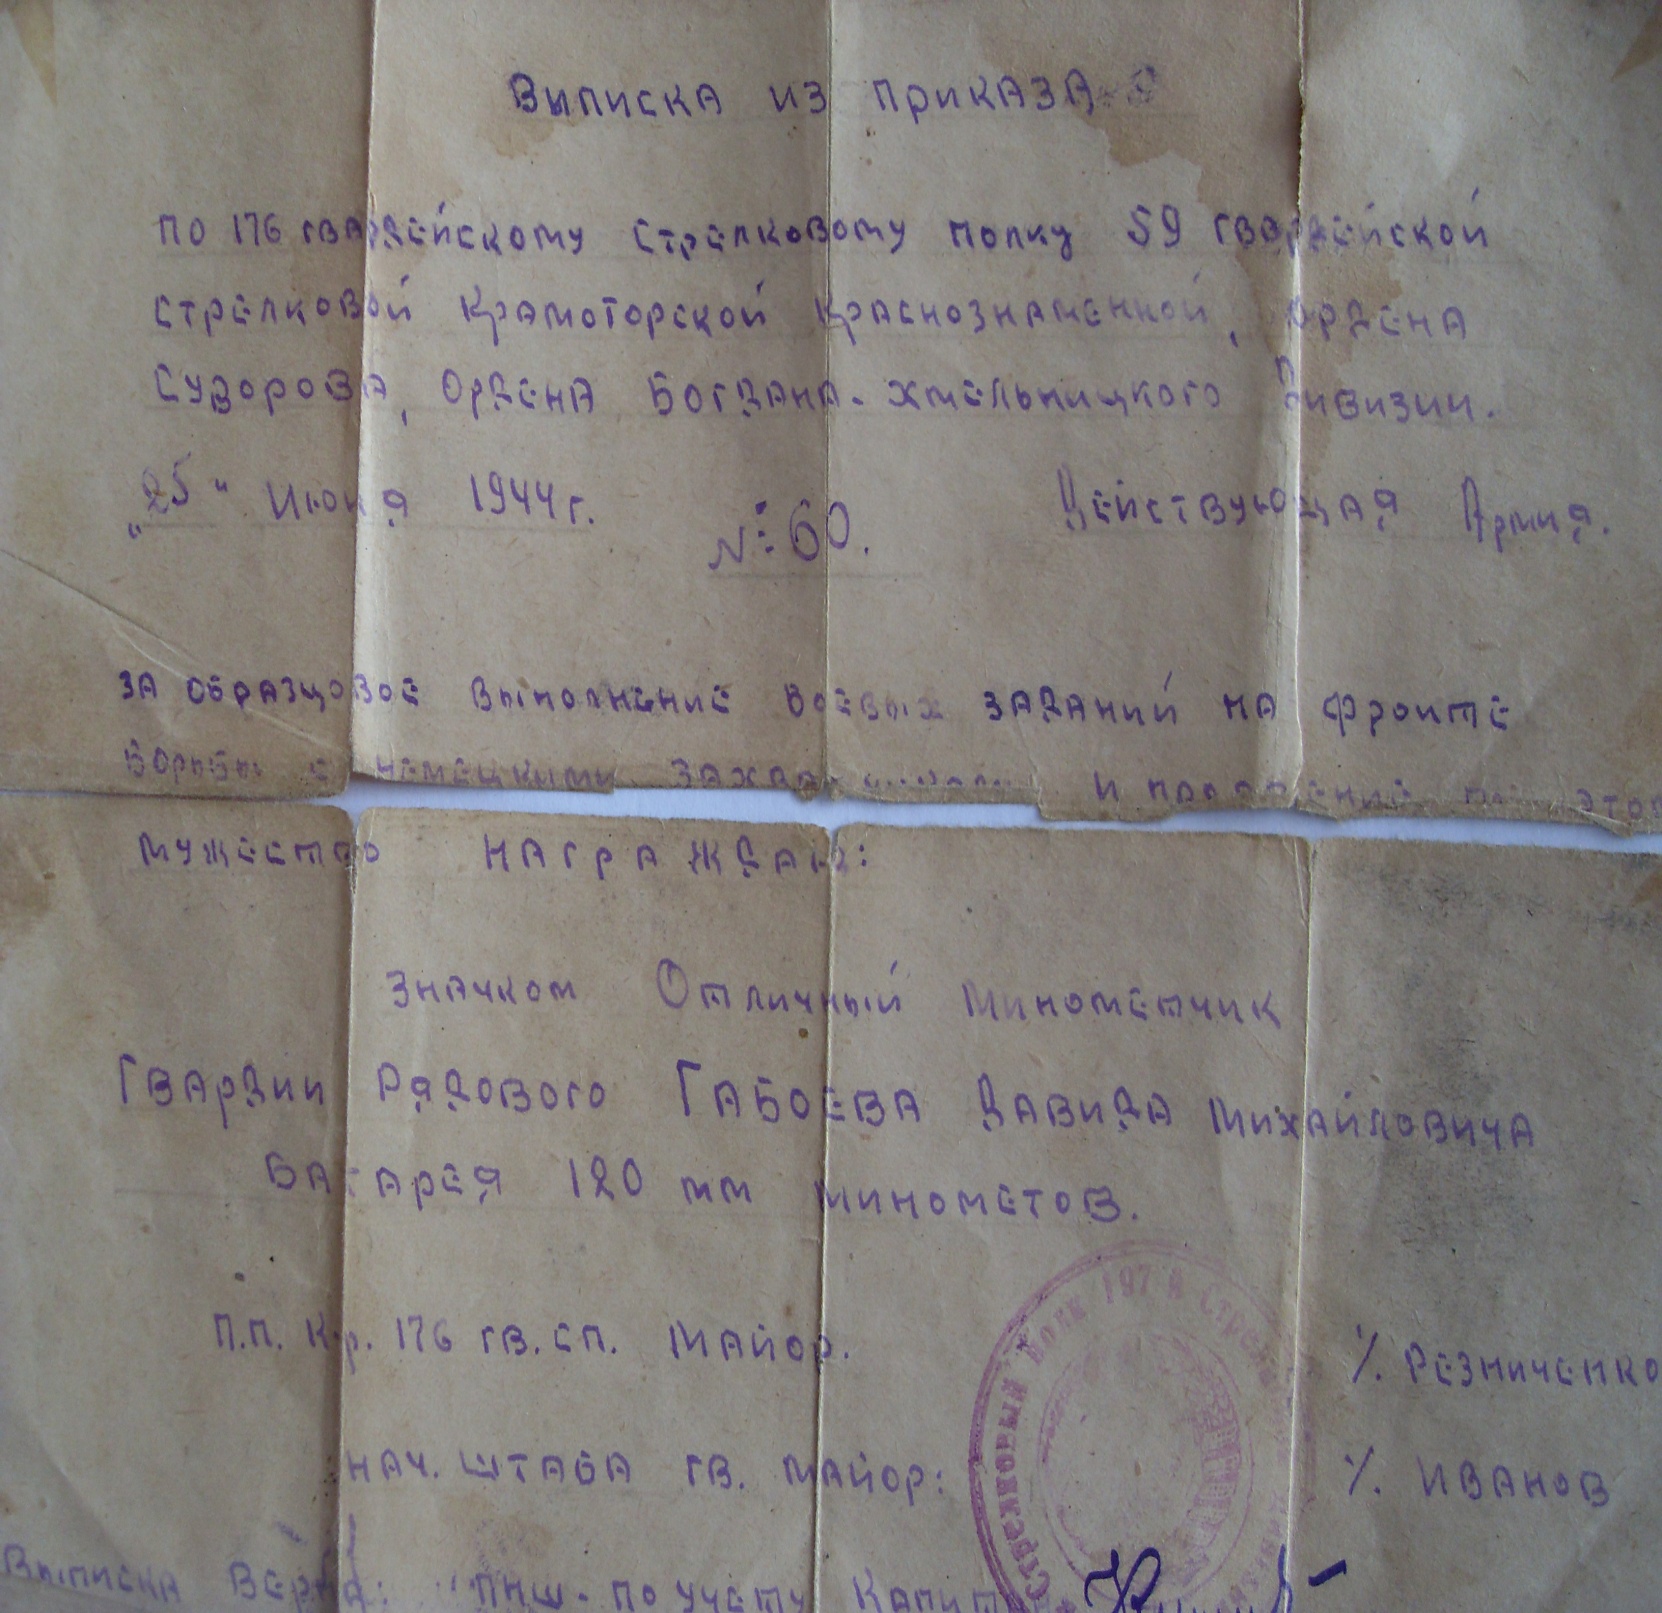 Выписка из приказа
по 176 гвардейскому стрелковому полку 59 гвардейской
стрелковой Краматорской Краснознаменной, ордена
Суворова, Ордена Богдана-Хмельницкого Дивизии.
"25" Июня 1944 г. Действующая Армия.
№ 60.
за образцовое выполнение боевых заданий на фронте
борьбы с немецкими и проявление этом
мужество награждаю:
значком Отличный Минометчик
Гвардии Рядового Габоева Давида Михайловича
Батарея 120 мм минометов.
П.П. К-р. 176 гв. сп. Майор. /. Резниченко
нач. штаба гв. майор: /. Иванов
Выписка верна: ПНШ. по учету Капитан
Стрелковый Полк 197 Я